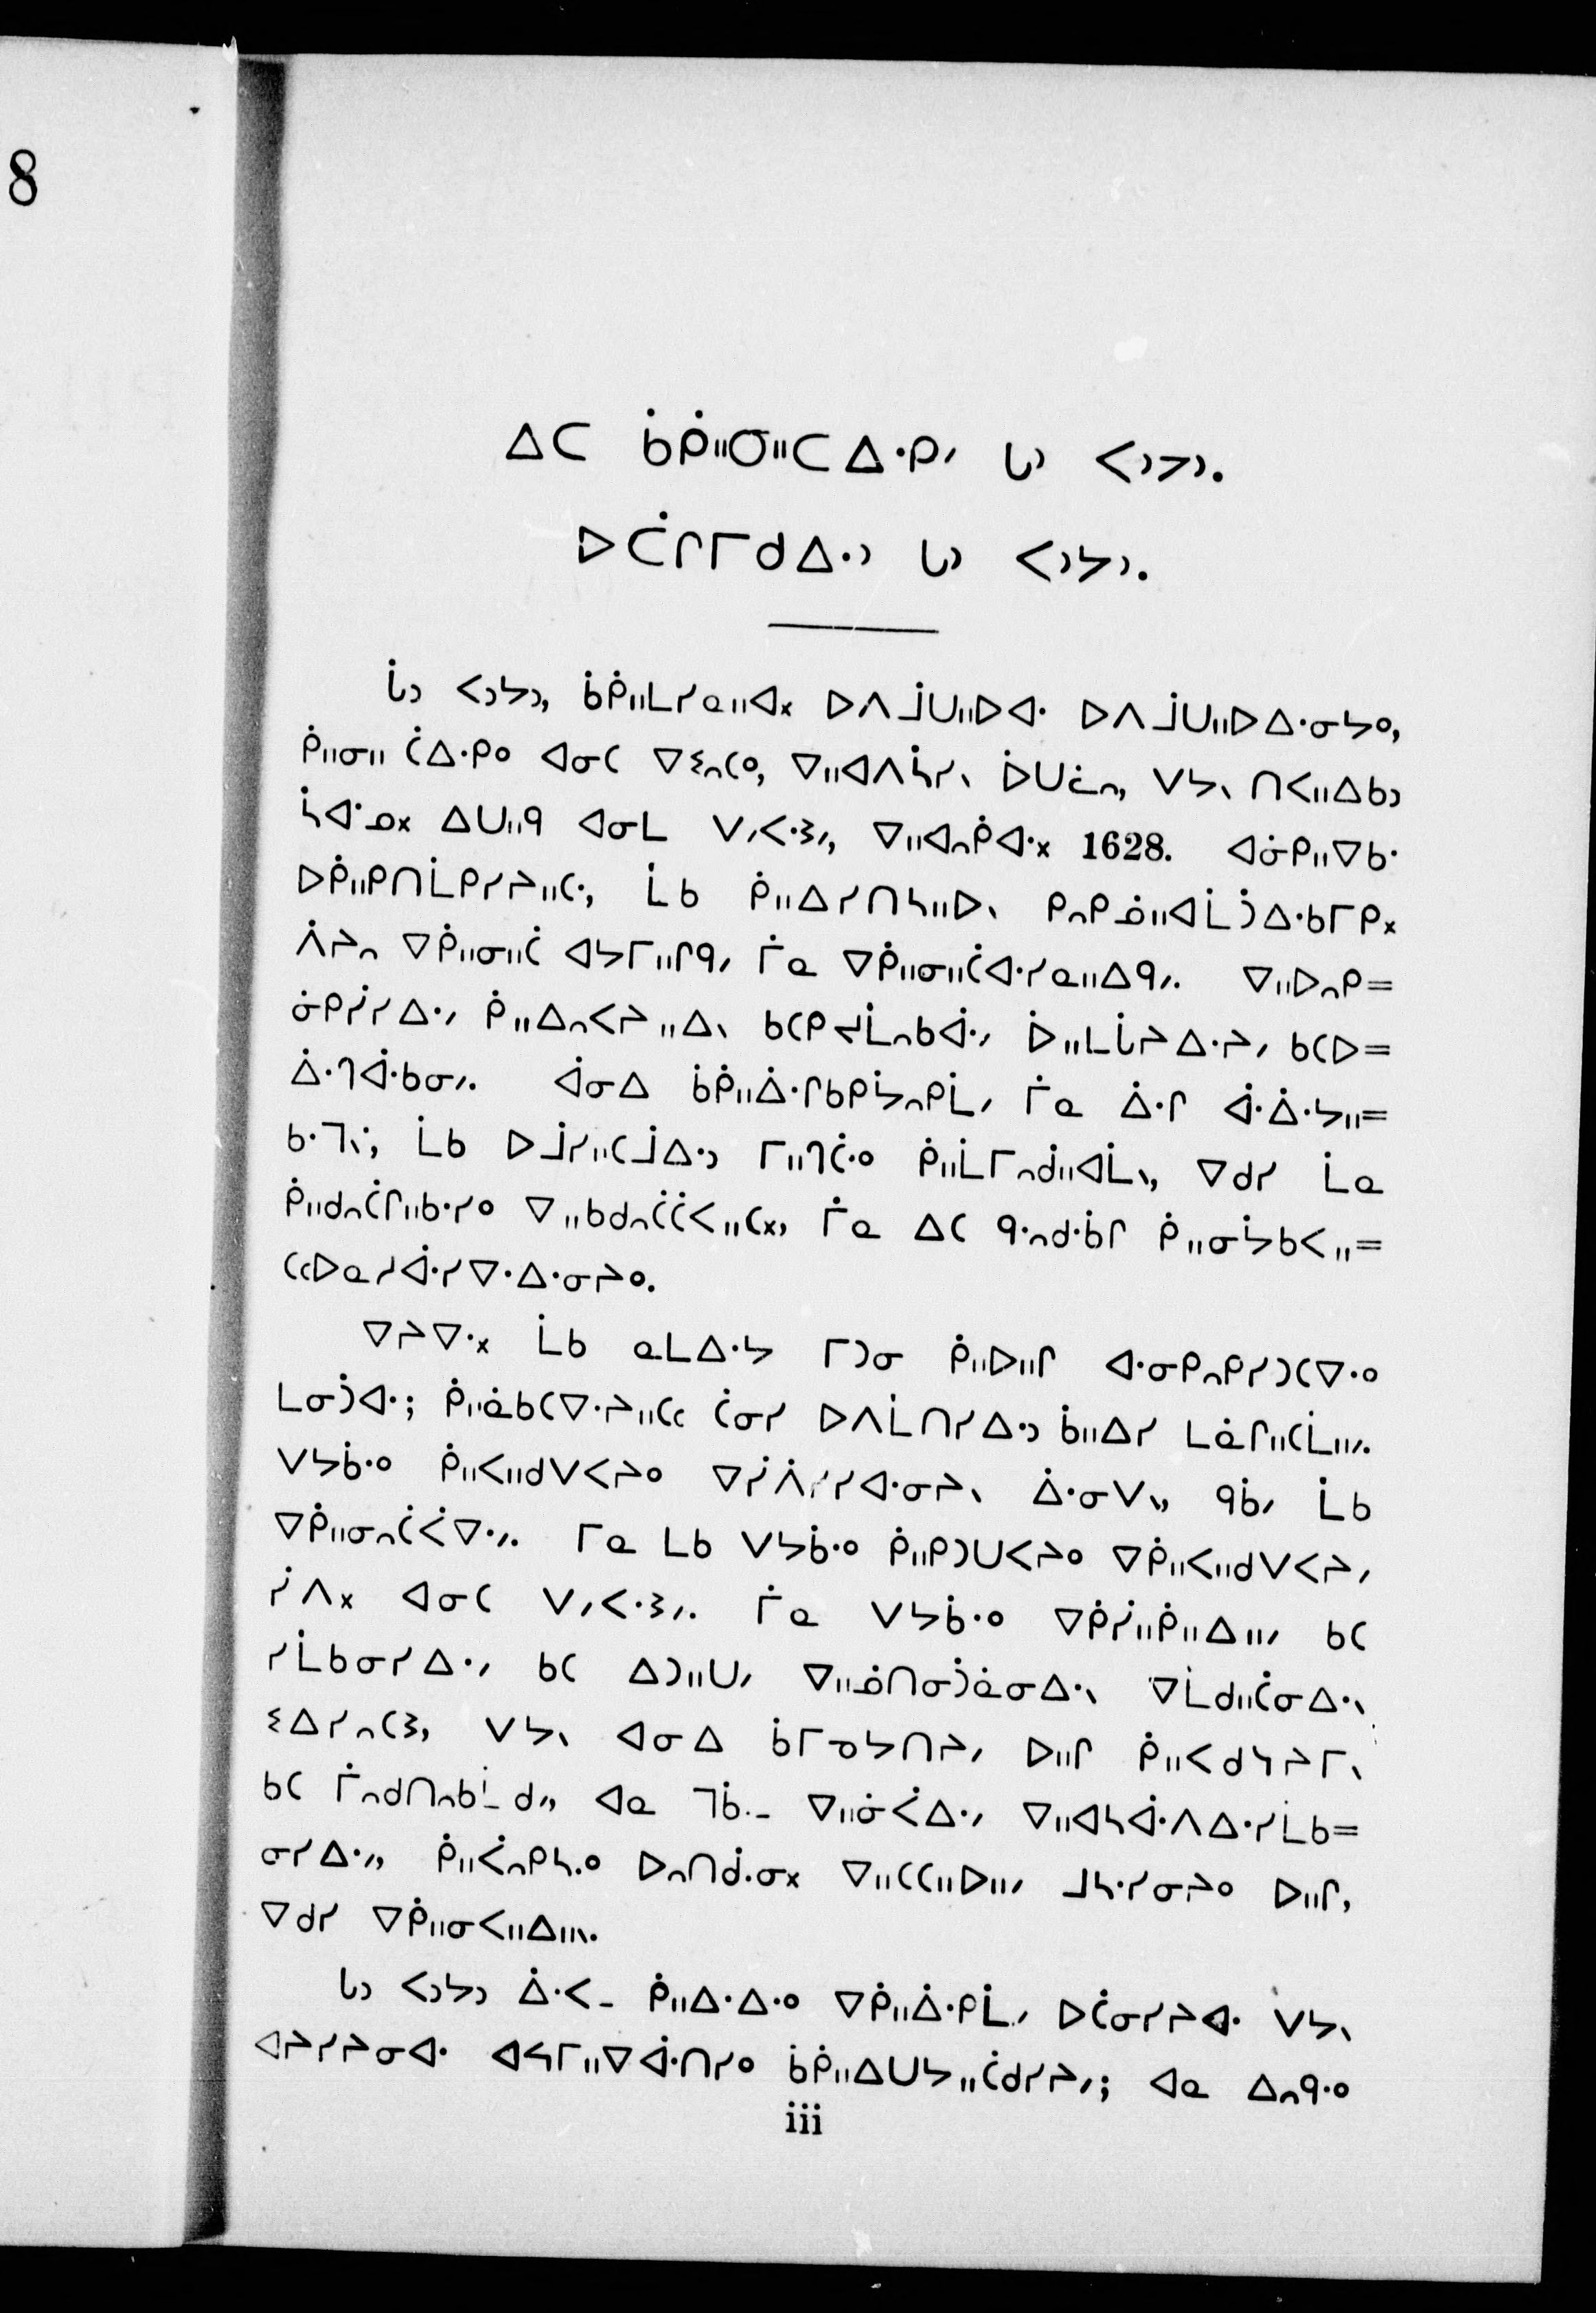 8
ᐃᑕ ᑳᑮᐦᓂᐦᑕᐃᐧᑭᐟ ᒐᐣ ᐸᐣᔭᐣ.
ᐅᑖᒋᒥᑯᐃᐧᐣ ᒐᐣ ᐸᐣᔭᐣ.
ᒑᐣ ᐸᐣᔭᐣ, ᑳᑮᐦᒪᓯᓇᐦᐊᕽ ᐅᐱᒨᑌᐦᐅᐊᐧ ᐅᐱᒨᑌᐦᐅᐃᐧᓂᔭᐤ,
ᑮᐦᓂᐦ ᑖᐃᐧᑭᐤ ᐊᓂᑕ ᐁᓬᐢᑕᐤ, ᐁᐦᐊᐱᓵᓯᐠ ᐆᑌᓈᐢ, ᐯᔭᐠ ᑎᐸᐦᐃᑲᐣ
ᓵᐊᐧᓄᕽ ᐃᑌᐦᑫ ᐊᓂᒪ ᐯᐟᐸᐧᕒᐟ, ᐁᐦᐊᐢᑮᐊᐧᕽ 1628. ᐊᓃᑭᐦᐁᑲᐧ
ᐅᑮᐦᑭᑎᒫᑭᓯᔨᐦᑕᐧ, ᒫᑲ ᑮᐦᐃᓯᑎᓴᐦᐅᐠ ᑭᐢᑭᓅᐦᐊᒫᑑᐃᐧᑲᒥᑭᕽ
ᐲᔨᐢ ᐁᑮᐦᓂᐦᑖ ᐊᔭᒥᐦᒋᑫᐟ ᒦᓇ ᐁᑮᐦᓂᐦᑖᐊᐧᓯᓇᐦᐃᑫᐟ. ᐁᐦᐅᐢᑭ=
ᓃᑭᓰᓯᐃᐧᐟ ᑮᐦᐃᐢᐸᔨᐦᐃᐠ ᑲᑕᑭᔫᒫᐢᑲᐚᐟ ᐆᐦᒪᒑᔨᐃᐧᔨᐟ ᑲᑕᐅ=
ᐄᐧᒉᐚᑲᓂᐟ. ᐋᓂᐃ ᑳᑮᐦᐄᐧᒋᑲᑭᔮᐢᑭᒫᐟ ᒦᓇ ᐄᐧᒋ ᐚᐄᐧᔭᐦ=
ᑲᐧᒣᐠ; ᒫᑲ ᐅᒨᓯᐦᑕᒨᐃᐧᐣ ᒥᐦᒉᑖᐧᐤ ᑮᐦᒫᒥᐢᑰᐦᐊᒫᐠ, ᐁᑯᓯ ᒫᓇ
ᑮᐦᑯᐢᑖᒋᐦᑲᐧᓯᐤ ᐁᐦᑲᑯᐢᑖᑖᐸᐦᑕᕽ, ᒦᓇ ᐃᑕ ᑫᐧᐢᑯᐧᑳᒋ ᑮᐦᓂᔮᑲᐸᐦ=
ᑕᑕᐅᓇᓱᐚᓯᐁᐧᐃᐧᓂᔨᐤ.
ᐁᔨᐁᐧᕽ ᒫᑲ ᓇᒪᐃᐧᔭ ᒥᑐᓂ ᑮᐦᐅᐦᒋ ᐊᐧᓂᑭᐢᑭᓯᑐᑕᐁᐧᐤ
ᒪᓂᑑᐊᐧ; ᑮᐦᓈᑲᑕᐁᐧᔨᐦᑕᒼ ᑖᓂᓯ ᐅᐱᒫᑎᓯᐃᐧᐣ ᑳᐦᐃᓯ ᒪᓈᒋᐦᑕᒫᐦᐟ.
ᐯᔭᑳᐧᐤ ᑮᐦᐸᐦᑯᐯᐸᔨᐤ ᐁᓰᐲᓯᓯᐊᐧᓂᔨᐠ ᐄᐧᓂᐯᐠ, ᑫᑳᐟ ᒫᑲ
ᐁᑮᐦᓂᐢᑖᐹᐁᐧᐟ. ᒥᓇ ᒪᑲ ᐯᔭᑳᐧᐤ ᑮᐦᑭᑐᑌᐸᔨᐤ ᐁᑮᐦᐸᐦᑯᐯᐸᔨᐟ
ᓰᐱᕽ ᐊᓂᑕ ᐯᐟᐸᐧᕒᐟ. ᒦᓇ ᐯᔭᑳᐧᐤ ᐁᑮᓰᐦᑮᐦᐃᐦᐟ ᑲᑕ
ᓯᒫᑲᓂᓯᐃᐧᐟ ᑲᑕ ᐃᑐᐦᑌᐟ ᐁᐦᓅᑎᓂᑑᓈᓂᐃᐧᐠ ᐁᒫᑯᐦᑖᓂᐃᐧᐠ
ᓬᐃᓯᐢᑕᕒ, ᐯᔭᐠ ᐊᓂᐃ ᑳᒥᓀᔭᑎᔨᐟ ᐅᐦᒋ ᑮᐦᐸᑯᓴᔨᒥᐠ
ᑲᑕ ᒦᐢᑯᑎᐢᑲᐚᑯᐟ, ᐊᓇ ᒣᑲᐧᐨ ᐁᐦᓃᐹᐃᐧᐟ ᐁᐦᐊᓴᐚᐱᐃᐧᓯᒪᑲ=
ᓂᓯᐃᐧᐟ, ᑮᐦᐹᐢᑭᓴᐧᐤ ᐅᐢᑎᑳᐧᓂᕽ ᐁᐦᑕᑕᐦᐅᐦᐟ ᒧᓴᐧᓯᓂᔨᐤ ᐅᐦᒋ,
ᐁᑯᓯ ᐁᑮᐦᓂᐸᐦᐃᐦᐠ.
ᒐᐣ ᐸᐣᔭᐣ ᐄᐧᐸᐨ ᑮᐦᐃᐧᐃᐧᐤ ᐁᑮᐦᐄᐧᑭᒫᐟ ᐅᑖᓂᓯᔨᐊᐧ ᐯᔭᐠ
ᐊᔨᓯᔨᓂᐊᐧ ᐊᔭᒥᐦᐁᐚᑎᓯᐤ ᑳᑮᐦᐃᑌᔭᐦᑖᑯᓯᔨᐟ; ᐊᓇ ᐃᐢᑫᐧᐤ
iii